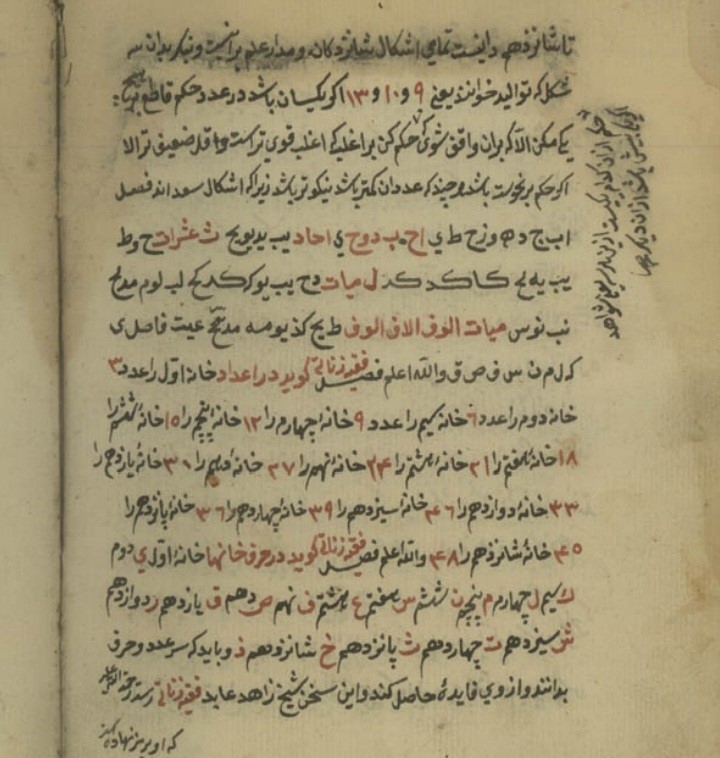 تا شانزدهم دانست تمامی اشکال شانزدکانه و مدار علم برانست و نیکر بدان سه
شکل که توالید خوانند یعنی ۹ و ۱۰ و ۱۳ اکر یکسان باشد در عدد حکم قاطع
یکی مکن الا که بران واقف شوی حکم کن بر اغلب که اغلب قوی تر است و اقل ضعیف تر الا
اکر حکم بر نحوست باشد هر چند که عدد ان کمتر باشد نیکوتر باشد زیرا که اشکال فصل
اب ج د ه و ز ح ط ی اح ب دوح ی احاد یب ید یو یح ث عشرات ح وط
یب یه یح کا کد کد ل میات دح یب یو کر کد کح لب لوم مد مح
نب نوس میات الوف الاف الوف ط یح کذ یو مه عیت فاصل ی
که ل م ن س ف ص ق والله اعلم فصل فقیه زناتی کوید در اعداد خانهٔ اول را عدد ۳
خانه دوم را عدد ۶ خانه سیم را عدد ۹ خانهٔ چهارم را ۱۲ خانهٔ پنجم را ۱۵ خانهٔ ششم را
۱۸ خانهٔ هفتم را ۲۱ خانهٔ هشتم را ۲۴ خانهٔ نهم را ۲۷ خانهٔ دهم را ۳۰ خانهٔ یازدهم را
۳۳ خانهٔ دوازدهم را ۴۶ خانهٔ سیزدهم را ۳۹ خانهٔ چهاردهم را ۳۶ خانهٔ پانزدهم را
۴۵ خانهٔ شانزدهم را ۴۸ والله اعلم فصل فقیه زناتی کوید در حرف خانها خانهٔ اول ی دوم
ك سیم ل چهارم م پنجم ن ششم س هفتم ع هشتم ف نهم ص دهم ق یازدهم ر دوازدهم
ش سیزدهم ت چهاردهم ث پانزدهم خ شانزدهم ذ و باید که سر عدد و حرف
بدانند و از وی فایدهٔ حاصل کند و این سخن شیخ زاهد عابد فقیه زناتی رحمة الله علیه
که او بر نهاده